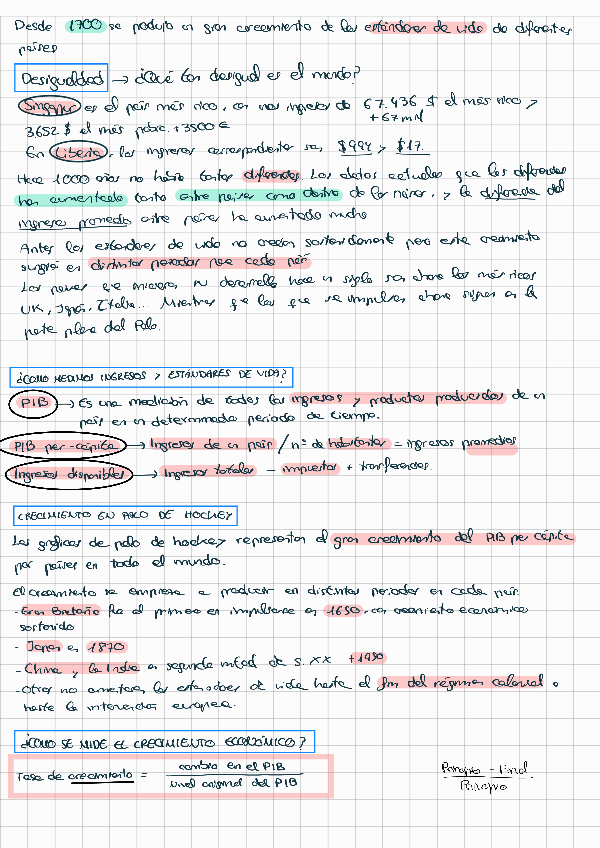 Desde 1700 se produjo un gran crecimiento de los estándares de vida de diferentes
países
Desigualdad → ¿Qué tan desigual es el mundo?
Singapur es el país más rico, con unos ingresos de 67.436 $ el más rico y
3652 $ el más pobre. +3500 €
+67 mil
En Liberia, los ingresos correspondientes son, $994 y $17.
Hace 1000 años no había tantas diferencias. Los datos actuales que las diferencias
han aumentado tanto entre países como dentro de los países, y la diferencia del
ingreso promedio entre países ha aumentado mucho
Antes los estándares de vida no crecían sostenidamente pero este crecimiento
surgió en distintos periodos para cada país
Los países que iniciaron su desarrollo hace un siglo son ahora los más ricos
UK, Japón, Italia... Mientras que los que se impulsan ahora siguen en la
parte plana del Palo.
¿CÓMO MEDIMOS INGRESOS Y ESTÁNDARES DE VIDA?
PIB → Es una medición de todos los ingresos y productos producidos de un
país en un determinado periodo de tiempo.
PIB per-cápita → Ingresos de un país / nº de habitantes = ingresos promedios
Ingresos disponibles → Ingresos totales - impuestos + tranferencias.
CRECIMIENTO EN PALO DE HOCKEY
Las gráficas de palo de hockey representan el gran crecimiento del PIB per cápita
por países en todo el mundo.
El crecimiento se empieza a producir en distintos periodos en cada país.
- Gran Bretaña fue el primero en impulsarse en 1650, con crecimiento económico
sostenido
- Japón en 1870
- China y la India en segunda mitad de s. XX +1950
- Otros no aumentan los estándares de vida hasta el fin del régimen colonial o
hasta la intervención europea.
¿CÓMO SE MIDE EL CRECIMIENTO ECONÓMICO?
Tasa de crecimiento = cambio en el PIB
nivel original del PIB
Principio - Final
Principio